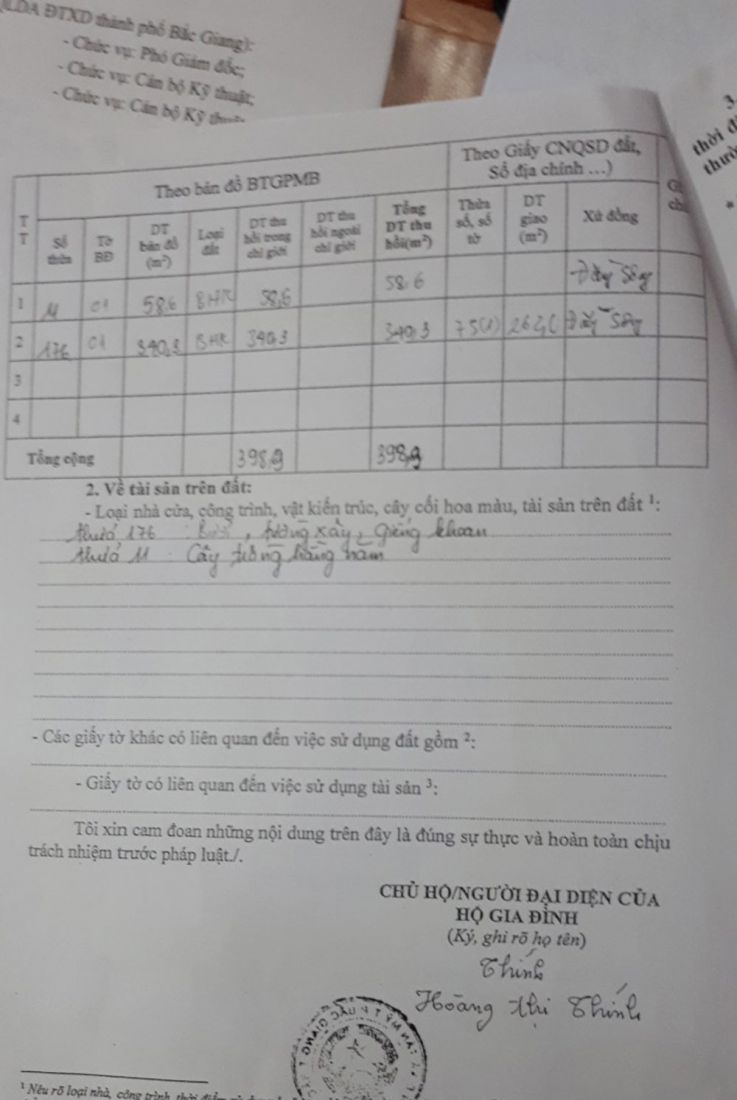 ĐTXD thành phố Bắc Giang):
- Chức vụ: Phó Giám đốc;
- Chức vụ: Cán bộ Kỹ thuật;
- Chức vụ: Cán bộ Kỹ
3
thời
TT Theo bản đồ BTGPMB Theo Giấy CNQSD đất, Sổ địa chính …)
Số thửa Tờ BĐ DT bản đồ (m²) Loại đất DT thu hồi trong chỉ giới DT thu hồi ngoài chỉ giới Tổng DT thu hồi(m²) Thửa số, số tờ DT giao (m²) Xứ đồng
1 11 01 58.6 BHK 58,6 58.6
2 176 01 340,3 BHK 340,3 340,3 75(1)
3
4
Tổng cộng 398,9 398,9
2. Về tài sản trên đất:
- Loại nhà cửa, công trình, vật kiến trúc, cây cối hoa màu, tài sản trên đất ¹:
thửa 176 : , tường xây, giếng khoan
thửa 11 : Cây hàng năm
- Các giấy tờ khác có liên quan đến việc sử dụng đất gồm ²:
- Giấy tờ có liên quan đến việc sử dụng tài sản ³:
Tôi xin cam đoan những nội dung trên đây là đúng sự thực và hoàn toàn chịu
trách nhiệm trước pháp luật./.
CHỦ HỘ/NGƯỜI ĐẠI DIỆN CỦA
HỘ GIA ĐÌNH
(Ký, ghi rõ họ tên)
Thính
Hoàng Thị Thính
¹ Nêu rõ loại nhà, công trình, thời điểm